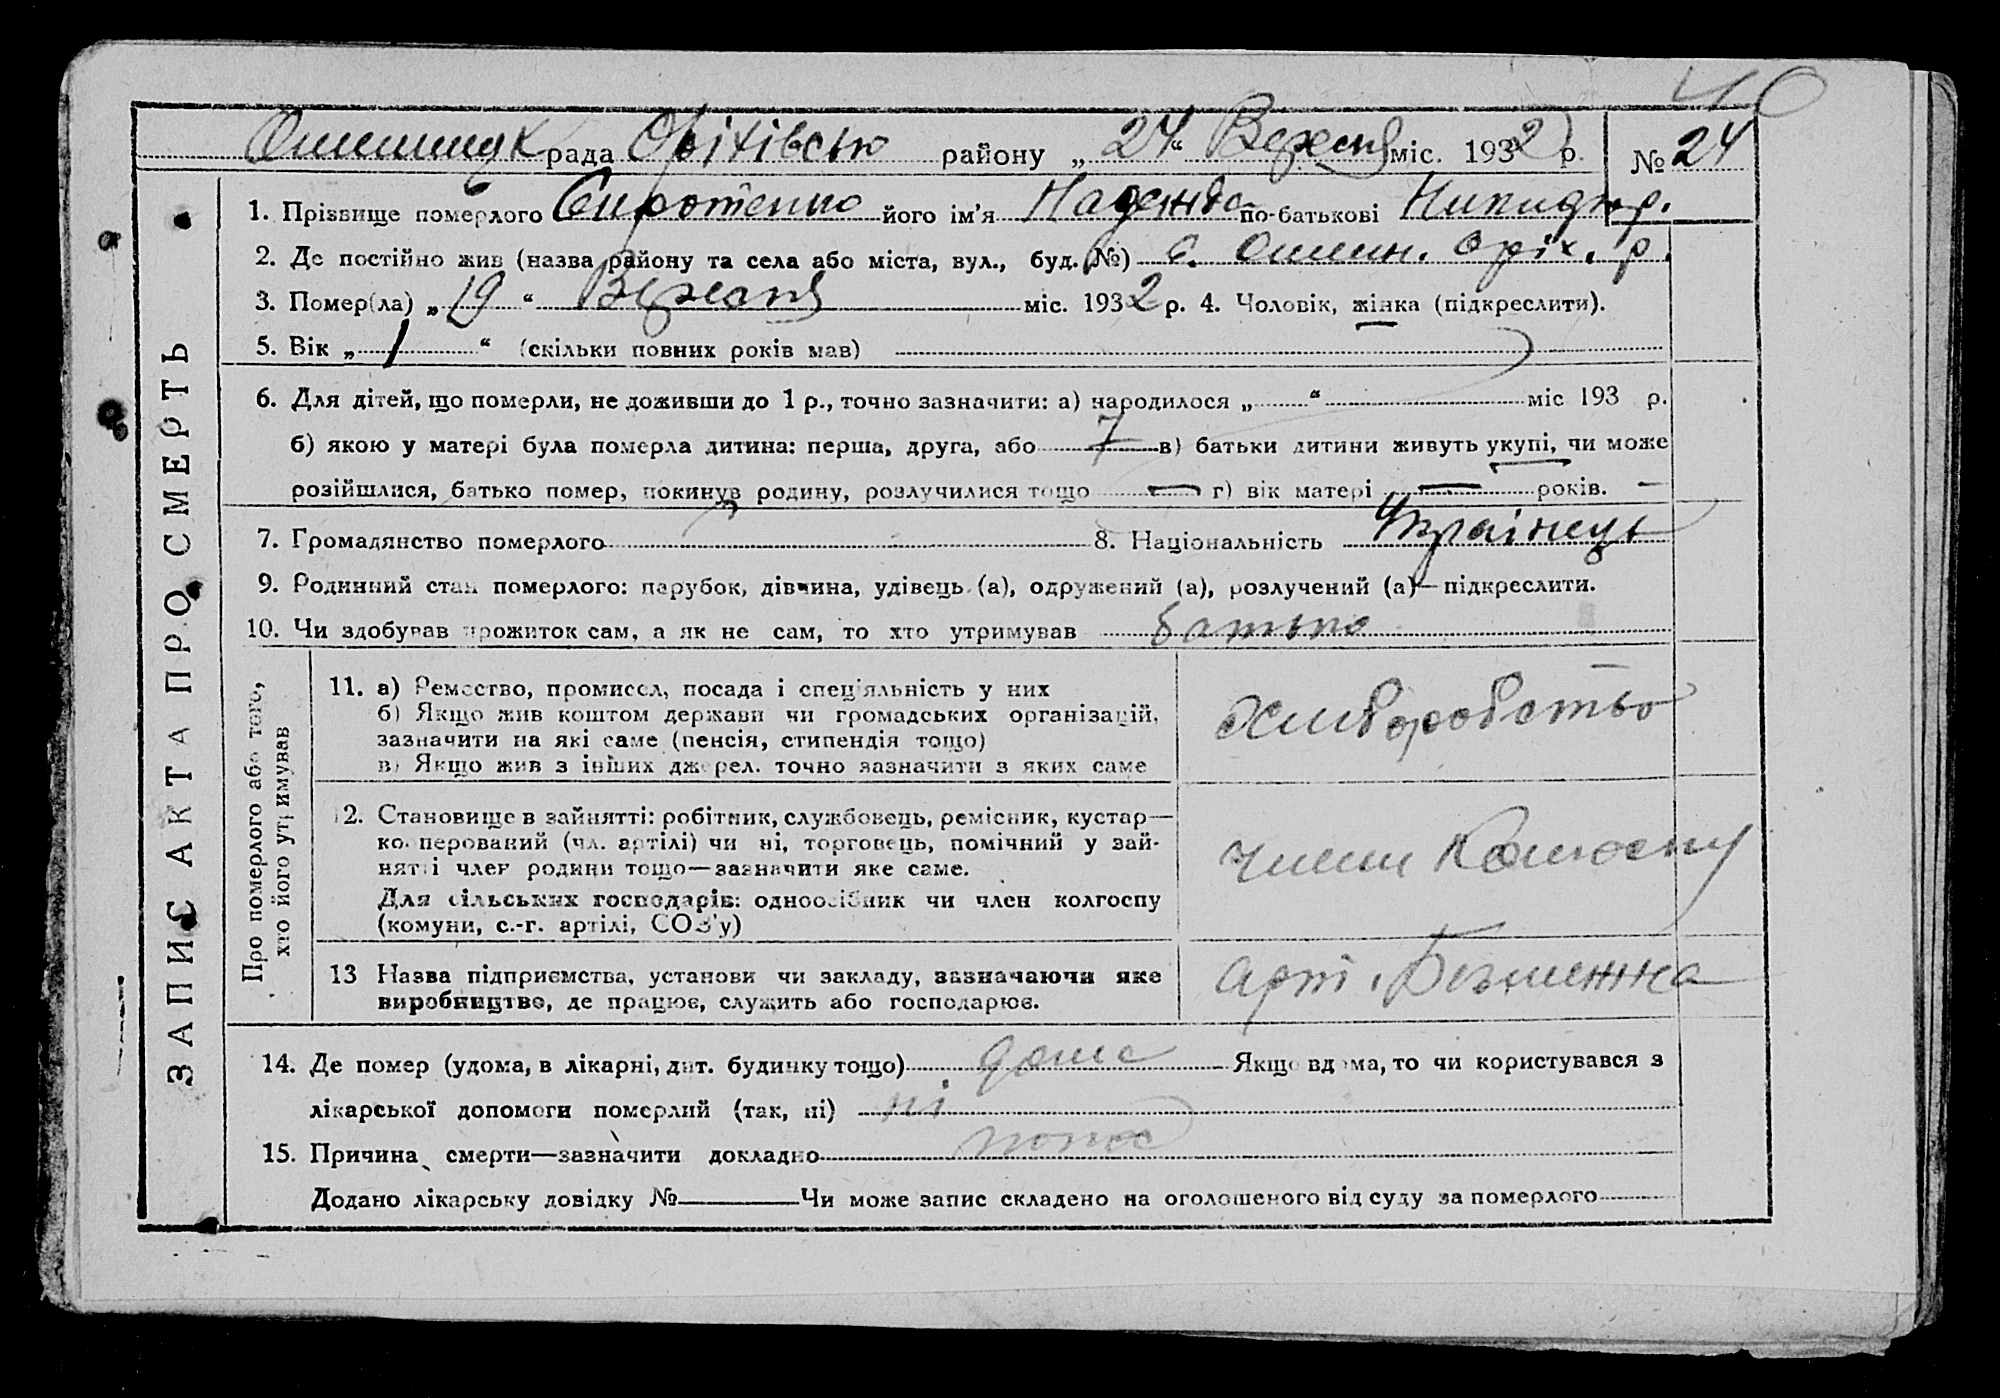 40
рада Оріхівсько району „ 24 “ Вересня міс. 1932 р. № 24
ЗАПИС АКТА ПРО СМЕРТЬ
1. Прізвище померлого Сиротенко його ім'я Надежда по-батькові
2. Де постійно жив (назва району та села або міста, вул., буд. №) с. Оріх. р.
3. Помер(ла) „ 19 “ Вересня міс. 1932 р. 4. Чоловік, жінка (підкреслити).
5. Вік „ 1 “ (скільки повних років мав)
6. Для дітей, що померли, не доживши до 1 р., точно зазначити: а) народилося „ “ міс 193 р.
б) якою у матері була померла дитина: перша, друга, або 7 в) батьки дитини живуть укупі, чи може
розійшлися, батько помер, покинув родину, розлучилися тощо — г) вік матері — років. —
7. Громадянство померлого 8. Національність Українець
9. Родинний стан померлого: парубок, дівчина, удівець (а), одружений (а), розлучений (а)—підкреслити.
10. Чи здобував прожиток сам, а як не сам, то хто утримував батько
Про померлого або того, хто його утримував
11. а) Ремество, промисел, посада і спеціяльність у них
б) Якщо жив коштом держави чи громадських організацій,
зазначити на які саме (пенсія, стипендія тощо)
в) Якщо жив з інших джерел. точно зазначити з яких саме
Хліборобство
12. Становище в зайнятті: робітник, службовець, ремісник, кустар—
кооперований (чл. артілі) чи ні, торговець, помічний у зай-
нятті член родини тощо—зазначити яке саме.
Для сільських господарів: одноосібник чи член колгоспу
(комуни, с.-г. артілі, СОЗ'у)
член Колгоспу
13 Назва підприємства, установи чи закладу, зазначаючи яке
виробництво, де працює, служить або господарює.
Арт.
14. Де помер (удома, в лікарні, дит. будинку тощо) дома Якщо вдома, то чи користувався з
лікарської допомоги померлий (так, ні) ні
15. Причина смерти—зазначити докладно понос
Додано лікарську довідку № Чи може запис складено на оголошеного від суду за померлого